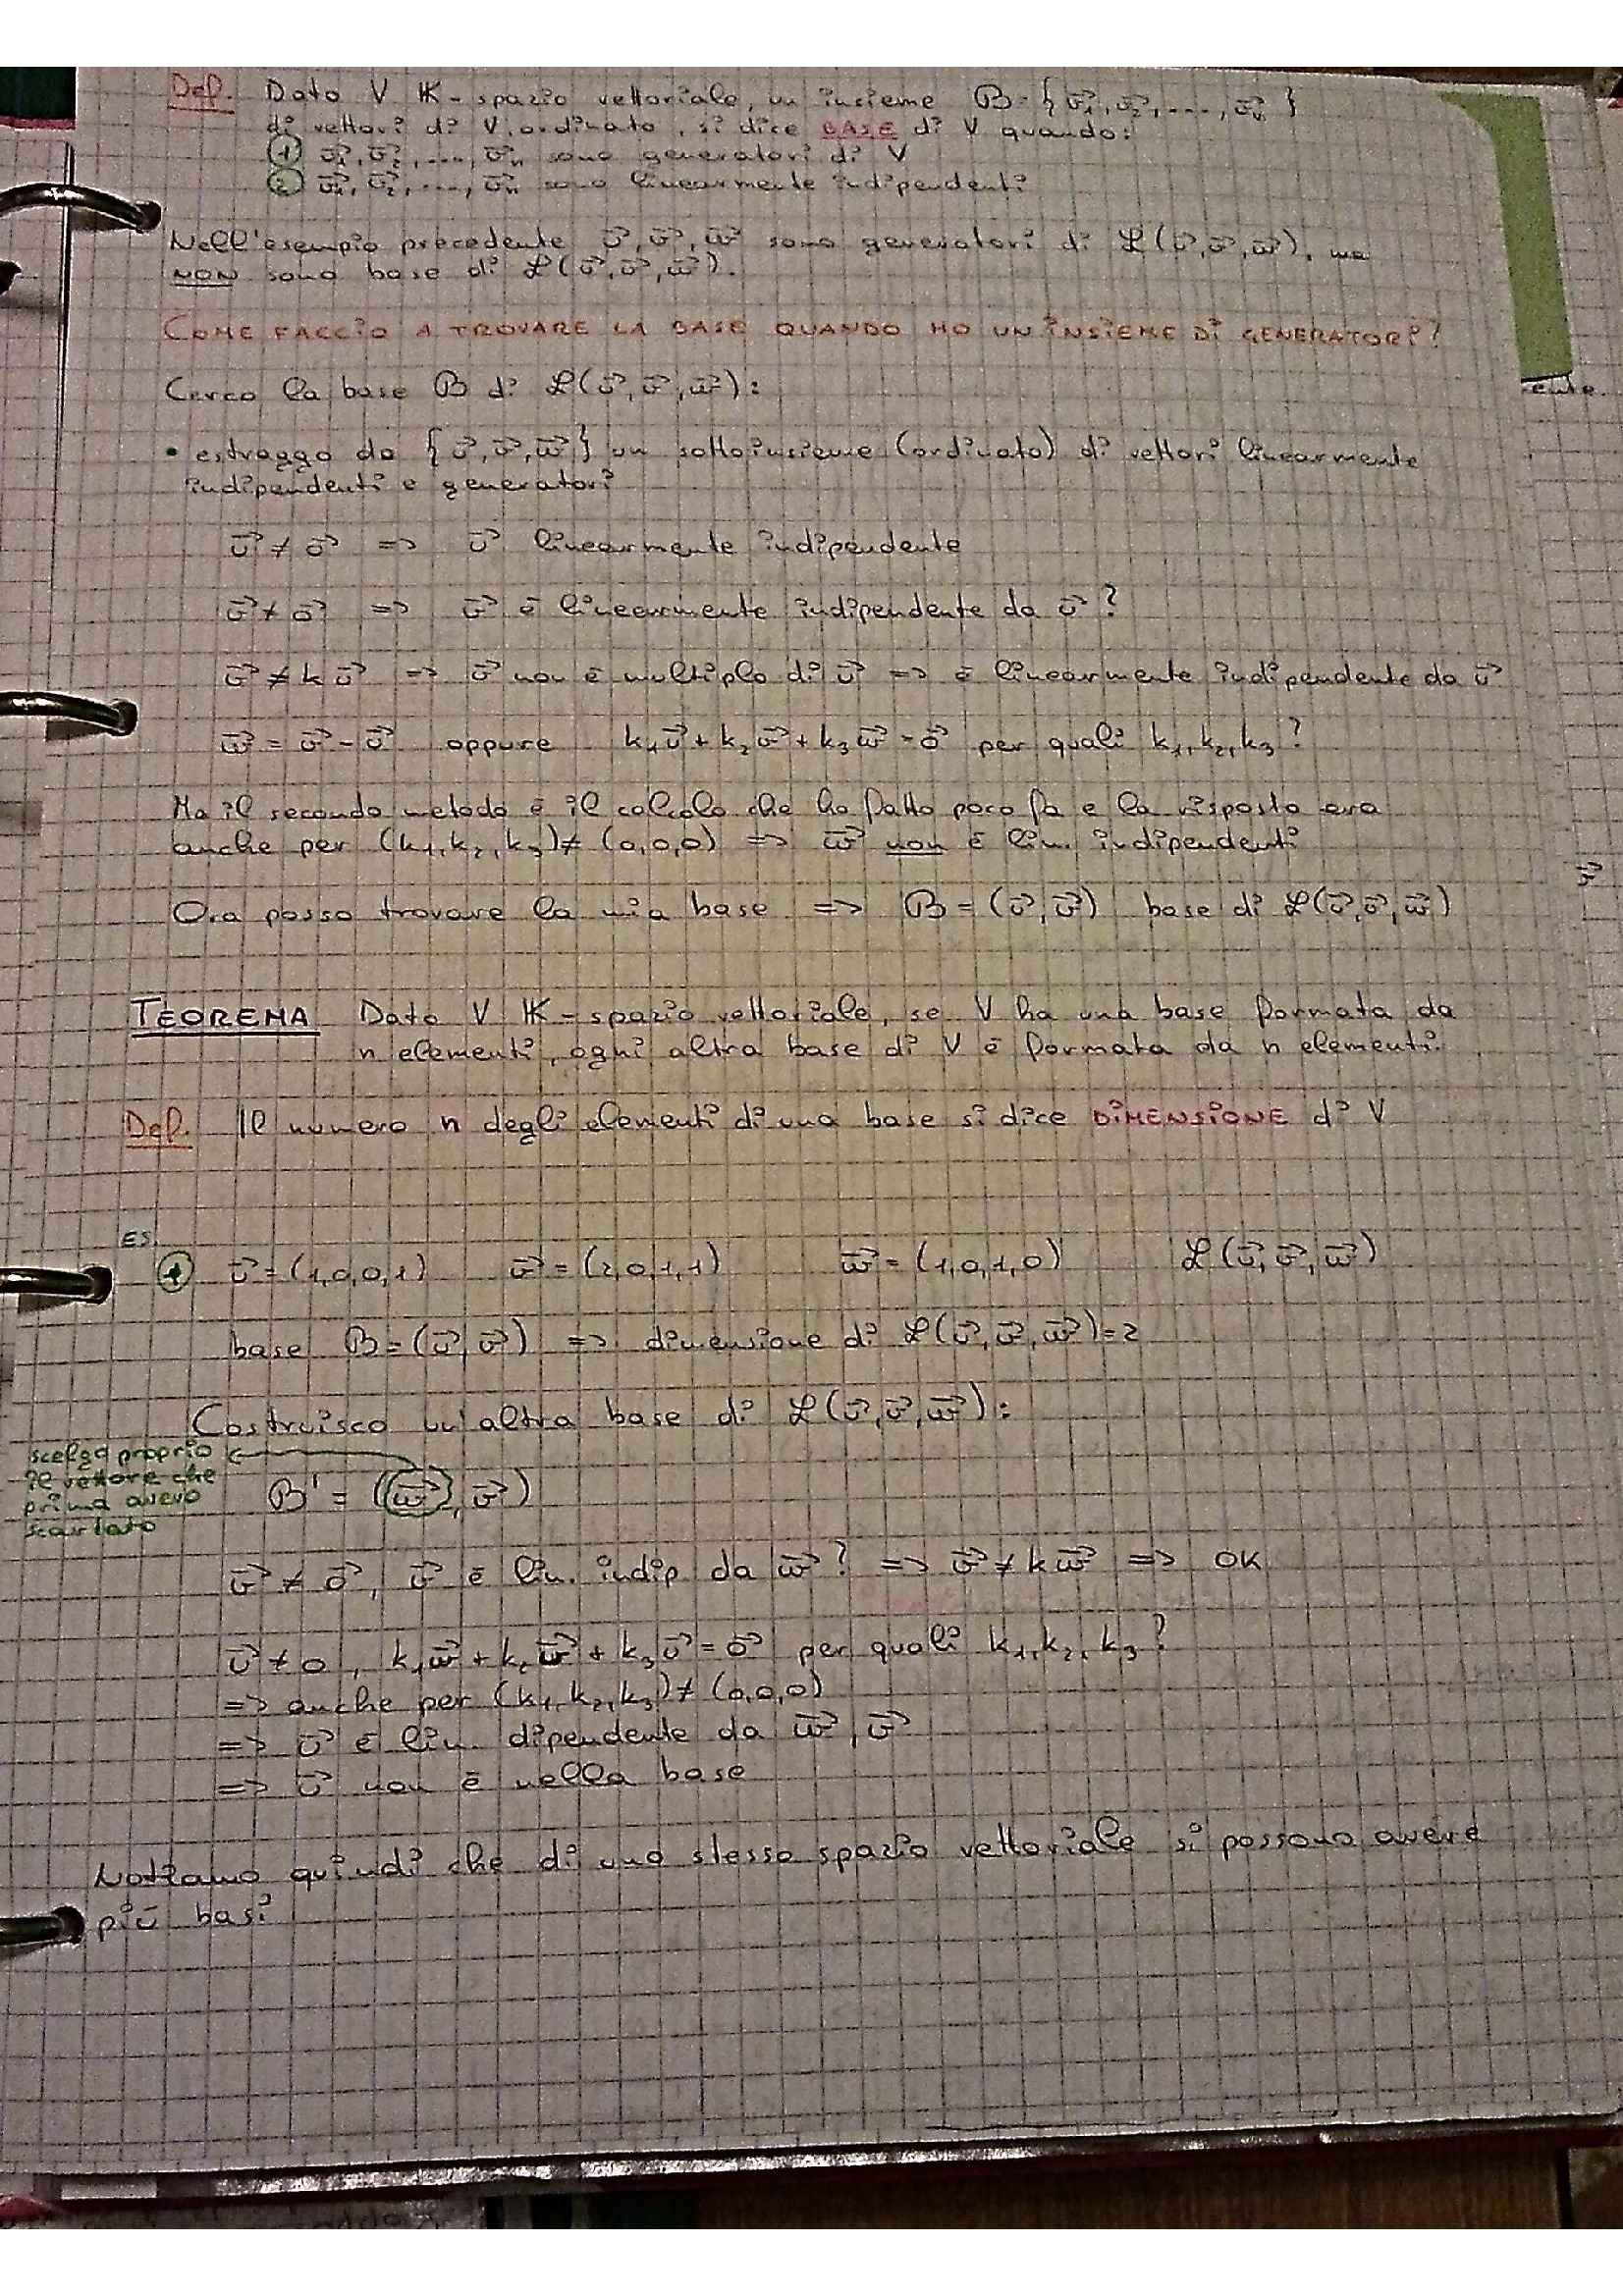 Def. Dato V K-spazio vettoriale, un insieme B={v⃗1, v⃗2, ...., v⃗n}
di vettori di V, ordinato, si dice BASE di V quando:
① v⃗1, v⃗2, ...., v⃗n sono generatori di V
② v⃗1, v⃗2, ...., v⃗n sono linearmente indipendenti
Nell'esempio precedente u⃗, v⃗, w⃗ sono generatori di L(u⃗,v⃗,w⃗), ma
NON sono base di L(u⃗,v⃗,w⃗).
COME FACCIO A TROVARE LA BASE QUANDO HO UN INSIEME DI GENERATORI?
Cerco la base B di L(u⃗,v⃗,w⃗):
ente
• estraggo da {u⃗,v⃗,w⃗} un sottoinsieme (ordinato) di vettori linearmente
indipendenti e generatori
u⃗ ≠ o⃗ => u⃗ linearmente indipendente
v⃗ ≠ o⃗ => v⃗ è linearmente indipendente da u⃗?
v⃗ ≠ k u⃗ => v⃗ non è multiplo di u⃗ => è linearmente indipendente da u⃗
w⃗ = v⃗ - u⃗ oppure k1u⃗ + k2v⃗ + k3w⃗ = o⃗ per quali k1, k2, k3?
Ma il secondo metodo è il calcolo che ho fatto poco fa e la risposta era
anche per (k1, k2, k3) ≠ (0,0,0) => w⃗ non è lin. indipendenti
Ora posso trovare la mia base => B = (u⃗, v⃗) base di L(u⃗,v⃗,w⃗)
TEOREMA Dato V K-spazio vettoriale, se V ha una base formata da
n elementi, ogni altra base di V è formata da n elementi.
Def. Il numero n degli elementi di una base si dice DIMENSIONE di V
ES.
① u⃗ = (1,0,0,1) v⃗ = (2,0,1,1) w⃗ = (1,0,1,0) L(u⃗,v⃗,w⃗)
base B = (u⃗,v⃗) => dimensione di L(u⃗,v⃗,w⃗)=2
Costruisco un'altra base di L(u⃗,v⃗,w⃗):
scelgo proprio
il vettore che
prima avevo
scartato
B' = (w⃗, v⃗)
v⃗ ≠ o⃗, v⃗ è lin. indip da w⃗? => v⃗ ≠ k w⃗ => OK
u⃗ ≠ 0, k1w⃗ + k2w⃗ + k3u⃗ = o⃗ per quali k1, k2, k3?
=> anche per (k1, k2, k3) ≠ (0,0,0)
=> u⃗ è lin. dipendente da w⃗, v⃗
=> u⃗ non è nella base
Notiamo quindi che di uno stesso spazio vettoriale si possono avere
più basi